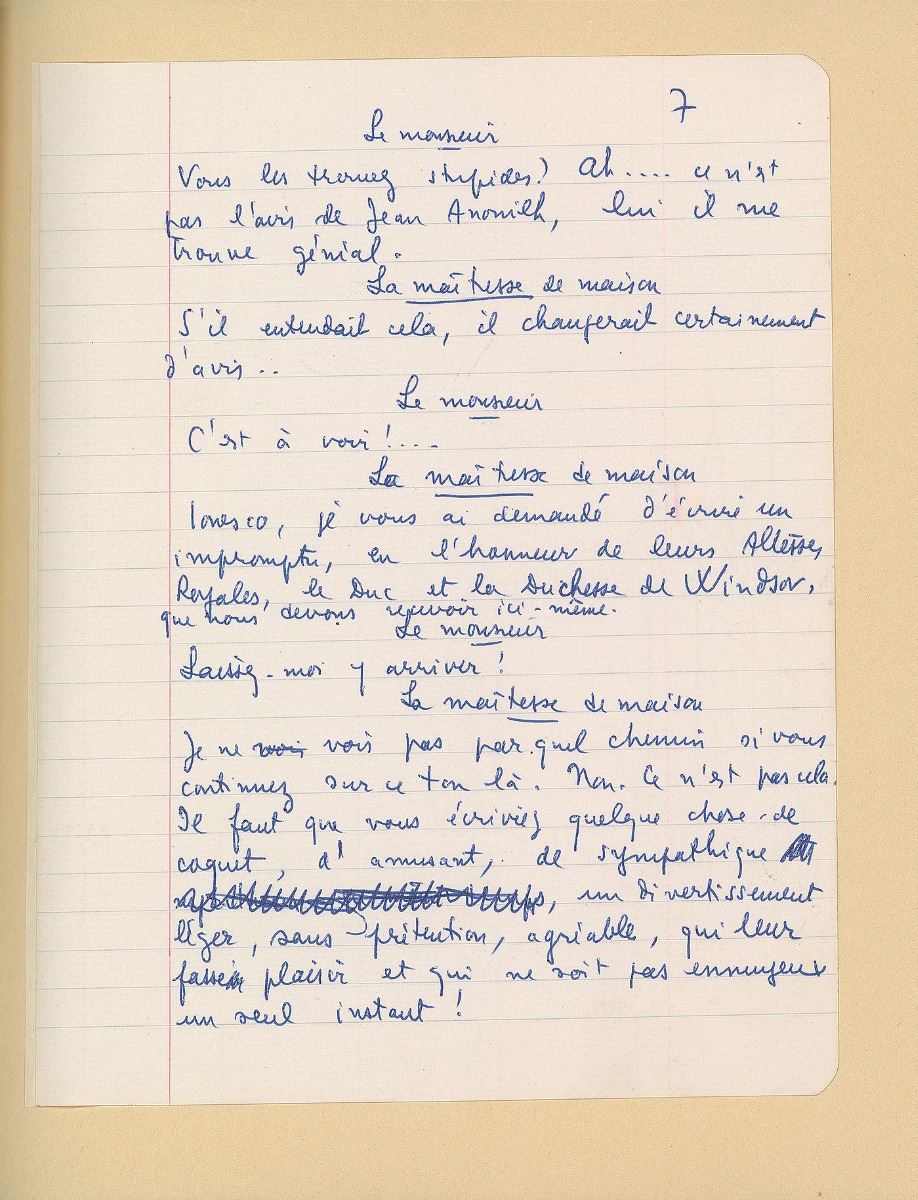 7
Le monsieur
Vous les trouvez stupides? Ah.... ce n'est
pas l'avis de Jean Anouilh, lui il me
trouve génial.
La maîtresse de maison
S'il entendait cela, il changerait certainement
d'avis..
Le monsieur
C'est à voir!....
La maîtresse de maison
Ionesco, je vous ai demandé d'écrire un
impromptu, en l'honneur de leurs Altesses
Royales, le Duc et la Duchesse de Windsor,
que nous devons recevoir ici-même.
Le monsieur
Laissez-moi y arriver!
La maîtresse de maison
Je ne voix vois pas par quel chemin si vous
continuez sur ce ton là. Non. Ce n'est pas cela.
Il faut que vous écriviez quelque chose de
coquet, d'amusant, de sympathique
, un divertissement
léger, sans prétention, agréable, qui leur
fasse plaisir et qui ne soit pas ennuyeux
un seul instant!